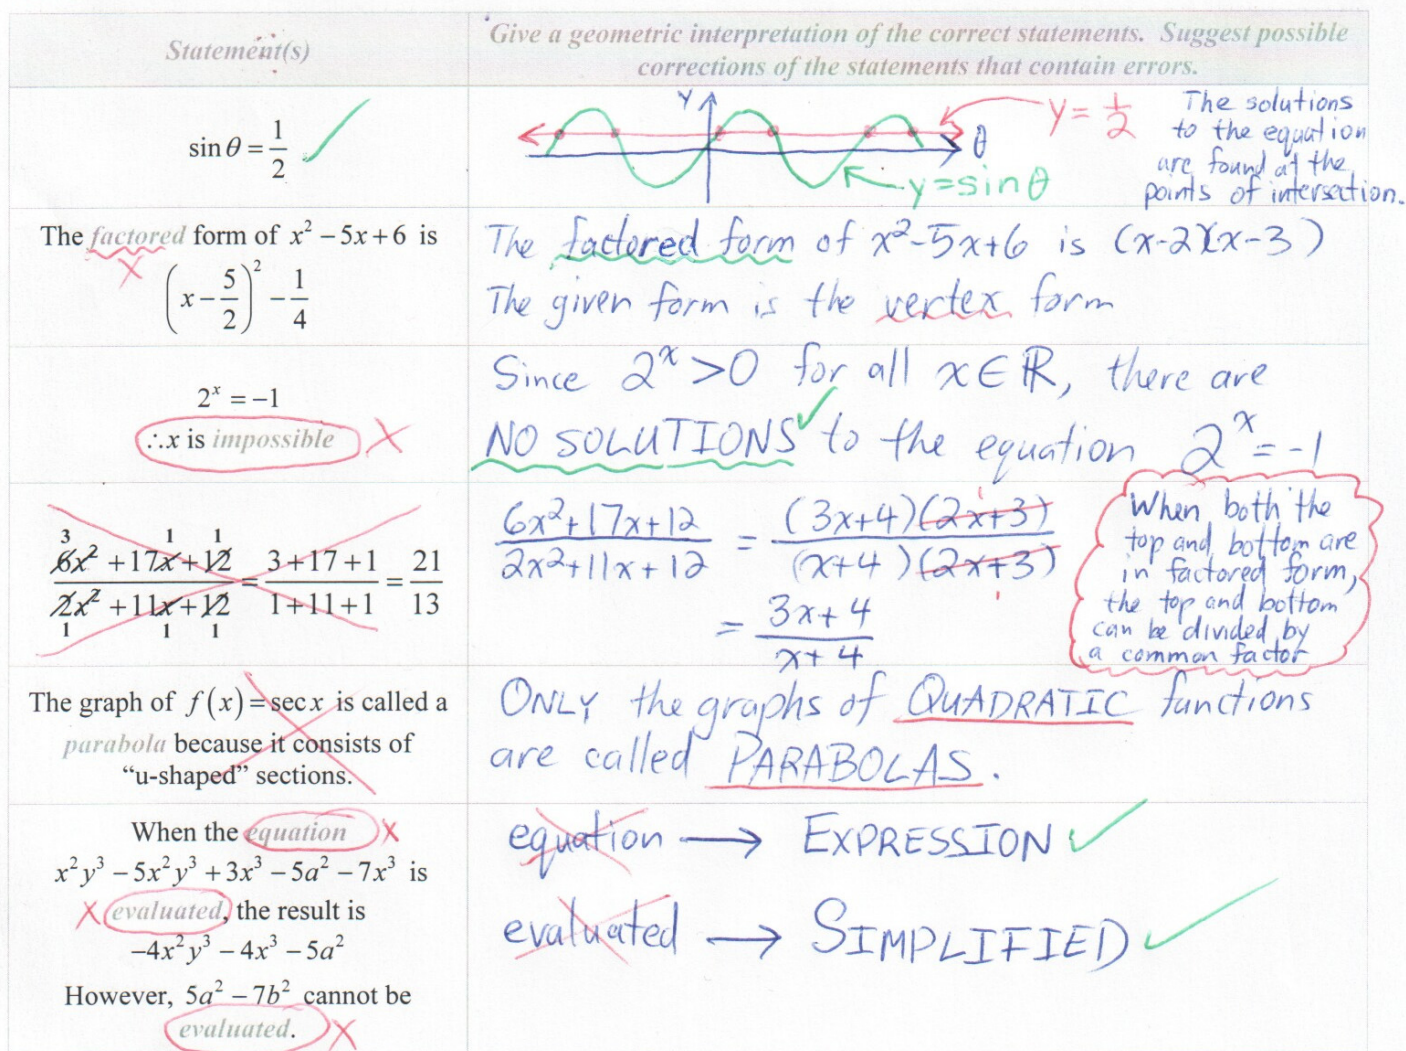 Statement(s)
Give a geometric interpretation of the correct statements. Suggest possible
corrections of the statements that contain errors.
sin θ = 1/2 ✓
Y
θ
y = 1/2
y=sinθ
The solutions
to the equation
are found at the
points of intersection.
The factored form of x² − 5x + 6 is
X
(x − 5/2)² − 1/4
The factored form of x²-5x+6 is (x-2)(x-3)
The given form is the vertex form
2ˣ = −1
∴ x is impossible X
Since 2ˣ >0 for all x ∈ ℝ, there are
NO SOLUTIONS ✓ to the equation 2ˣ = -1
3 1 1
6x² + 17x + 12 / 2x² + 11x + 12 = 3 + 17 + 1 / 1 + 11 + 1 = 21/13
1 1 1
6x²+17x+12 / 2x²+11x+12 = (3x+4)(2x+3) / (x+4)(2x+3)
1
1
= 3x+4 / x+4
When both the
top and bottom are
in factored form,
the top and bottom
can be divided by
a common factor
The graph of f(x) = sec x is called a
parabola because it consists of
“u-shaped” sections.
ONLY the graphs of QUADRATIC functions
are called PARABOLAS.
When the equation X
x²y³ − 5x²y³ + 3x³ − 5a² − 7x³ is
X evaluated, the result is
−4x²y³ − 4x³ − 5a²
However, 5a² − 7b² cannot be
evaluated. X
equation → EXPRESSION ✓
evaluated → SIMPLIFIED ✓